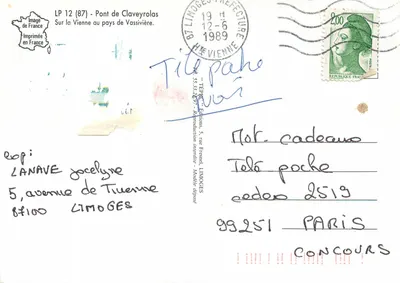 Image
de France
Imprimée
en France
LP 12 (87) - Pont de Claveyrolas
Sur la Vienne au pays de Vassivière.
87 LIMOGES PREFECTURE
19 H
12-6
1989
HTE VIENNE
2,00
REPUBLIQUE
Télé poche
exp:
LANAVE Jocelyne
5, avenue de Turenne
87100 LIMOGES
5, rue Ferrant, LIMOGES
Mot. cadeaux
Télé poche
cedex 2519
99251 PARIS
CONCOURS